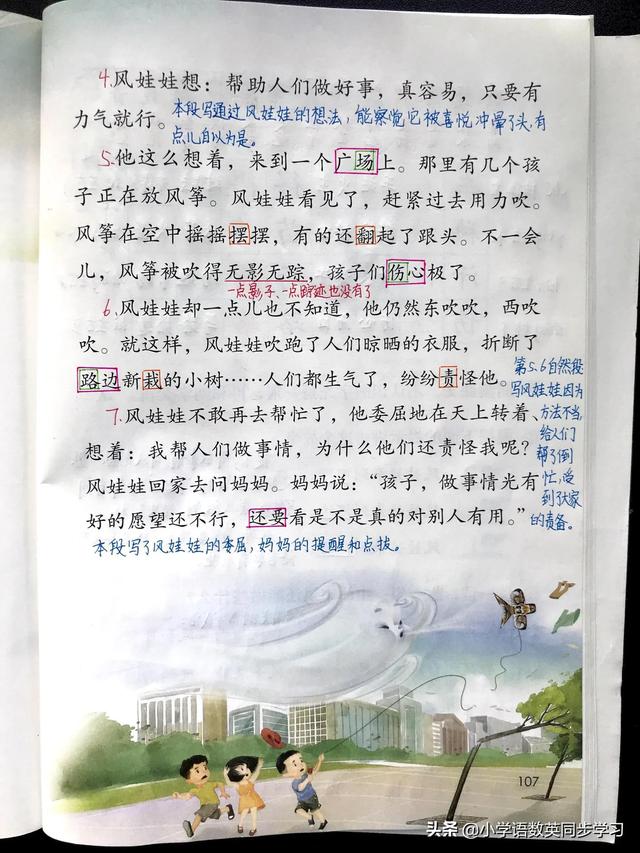 4.风娃娃想：帮助人们做好事，真容易，只要有
力气就行。本段写通过风娃娃的想法，能察觉它被喜悦冲晕了头，有
点儿自以为是。
5.他这么想着，来到一个广场上。那里有几个孩
子正在放风筝。风娃娃看见了，赶紧过去用力吹。
风筝在空中摇摇摆摆，有的还翻起了跟头。不一会
儿，风筝被吹得无影无踪，孩子们伤心极了。
一点影子、一点踪迹也没有了
6.风娃娃却一点儿也不知道，他仍然东吹吹，西吹
吹。就这样，风娃娃吹跑了人们晾晒的衣服，折断了
路边新栽的小树……人们都生气了，纷纷责怪他。
第5、6自然段
写风娃娃因为
方法不当，
给人们
帮了倒
忙，受
到了大家
的责备。
7.风娃娃不敢再去帮忙了，他委屈地在天上转着、
想着：我帮人们做事情，为什么他们还责怪我呢？
风娃娃回家去问妈妈。妈妈说：“孩子，做事情光有
好的愿望还不行，还要看是不是真的对别人有用。”
本段写了风娃娃的委屈，妈妈的提醒和点拨。
107
头条 @小学语数英同步学习